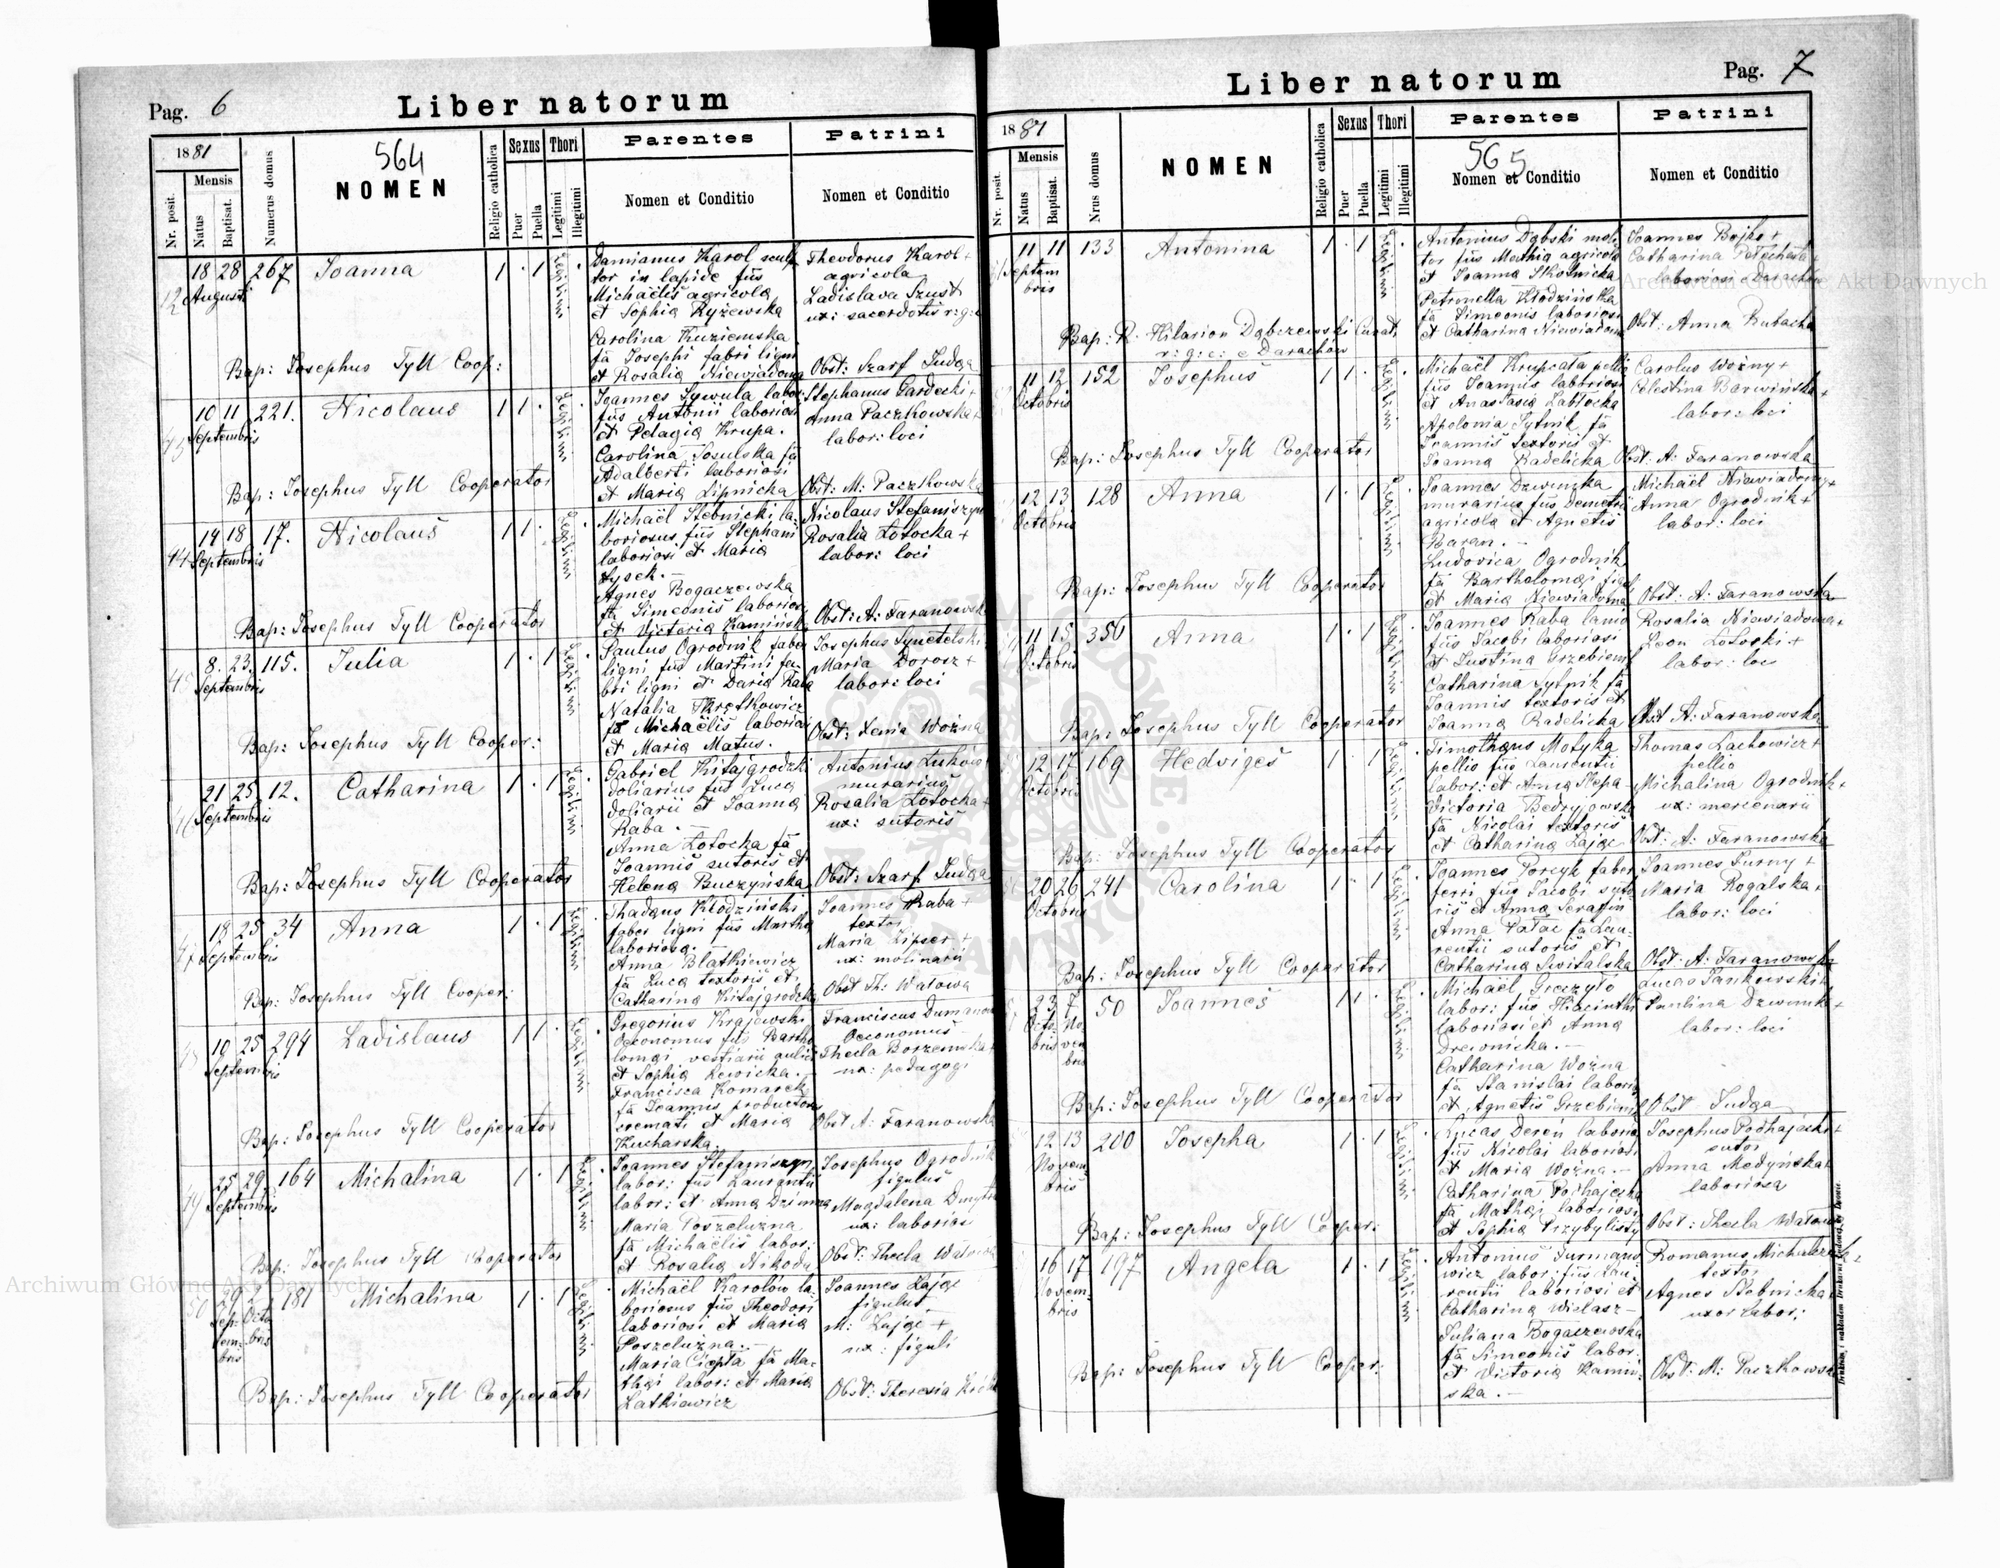 Pag. 6
Liber natorum
1881
Nr. posit.
Mensis
Natus
Baptisat.
Numerus domus
564
NOMEN
Religio catholica
Sexus
Puer
Puella
Thori
Legitimi
Illegitimi
Parentes
Nomen et Conditio
Patrini
Nomen et Conditio
18 28 267 Joanna 1 . 1
Augusti
Damianus Karol sculp
tor in lapide fus
Michaëlis agricola
et Sophia Ryżewska
Carolina Kuziemska
fa Josephi fabri lign
et Rosalia Niewiadoma
Theodorus Karol +
agricola
Ladislava Szust
ux: sacerdotis r: g: c
Obst: Szarf Judga
Bap: Josephus Tyll Coop:
10 11 221. Nicolaus 1 1 .
Septembris
Joannes Sywula labor
fus Antonii laboriosi
et Pelagia Krupa.
Carolina Sosulska fa
Adalberti laboriosi
et Maria Lipnicka
Stephanus Gardecki +
Anna Paczkowska +
labor: loci
Obst: M: Paczkowska
Bap: Josephus Tyll Cooperator
14 18 17. Nicolaus 1 1 .
Septembris
Michaël Stebnicki la-
boriosus fus Stephani
laboriosi et Maria
Łysek. —
Agnes Bogaczewska
fa Simeonis laborios
et Victoria Kamińska
Nicolaus Stefaniszyn
Rosalia Łotocka +
labor: loci
Obst: A: Faranowska
Bap: Josephus Tyll Cooperator
8. 23. 115. Julia 1 . 1
Septembris
Paulus Ogrodnik faber
ligni fus Martini fa-
bri ligni et Daria Raba
Natalia
fa Michaëlis laboriosi
et Maria Matus.
Maria Dorosz +
labor: loci
Obst: Xenia Woźna
Bap: Josephus Tyll Cooper:
21 25 12. Catharina 1 . 1
Septembris
Gabriel Kitajgrodzki
doliarius fus Luca
doliarii et Joanna
Raba. —
Anna Łotocka fa
Joannis sutoris et
Helena Buczyńska
Antonius
murarius
Rosalia Łotocka +
ux: sutoris
Obst: Szarf Judga
Bap: Josephus Tyll Cooperator
18 25 34 Anna 1 . 1
Septembris
Thadaus Kłodziński
faber ligni fus Martha
laboriosa. —
Anna Blatkiewicz
fa Luca textoris et
Catharina Kitajgrodzka
Joannes Raba +
textor
Maria Lipser +
ux: molinarii
Obst Th: Watowa
Bap: Josephus Tyll Cooper:
19 25 294 Ladislaus 1 1 .
Septembris
Gregorius Krajewski
Oeconomus fus Bartho
lomai vestiarii aulic
et Sophia Rewicka. —
Francisca Komarek
fa Joannis productoris
cremati et Maria
Kucharska.
Franciscus
Oeconomus
Thecla Borzemska +
ux: pedagogi
Obst A: Faranowska
Bap: Josephus Tyll Cooperator
25 29 164 Michalina 1 . 1
Septembris
Joannes Stefaniszyn
labor: fus Laurentii
labor: et Anna
Maria Poszeluzna
fa Michaëlis labor:
et Rosalia Nikoda
Josephus Ogrodnik
figulus
Magdalena
ux: laborios
Obst: Thecla Watowa
Bap: Josephus Tyll Cooperator
181 Michalina 1 . 1
Sep- Octo
tem- bris
bris
Michaël Karolów la-
boriosus fus Theodori
laboriosi et Maria
Poszeluzna. —
Maria Ciepta fa Ma-
thai labor: et Maria
Latkiewicz
Joannes Zajge
figulus
M: Zajge +
ux: figuli
Obst: Theresia
Bap: Josephus Tyll Cooperator
Liber natorum
Pag. 7
1881
Nr. posit.
Mensis
Natus
Baptisat.
Nrus domus
NOMEN
Religio catholica
Sexus
Puer
Puella
Thori
Legitimi
Illegitimi
Parentes
565
Nomen et Conditio
Patrini
Nomen et Conditio
11 11 133 Antonina 1 . 1
Septem
bris
Antonius Dąbski moli
tor fus Mathia agricola
et Joanna Skośnicka
Petronella Kłodzińska
fa Simeonis laboriosi
et Catharina Niewiadoma
Joannes Bojko +
Catharina
laboriosi e Darachów
Obst: Anna Bubacha
Bap: R. Hilarion Dąbczewski Curat.
r: g: c: e Darachów
11 12 152 Josephus 1 1 .
Octobris
Michaël Krupcata pellio
fus Joannis laboriosi
et Anastasia Zabłocka
Apolonia Sytnik fa
Joannis textoris et
Joanna Radelicka
Carolus Woźny +
Celestina Barwińska +
labor: loci
Obst: A: Faranowska
Bap: Josephus Tyll Cooperator
12 13 128 Anna 1 . 1
Octobris
Joannes Dzwinka
murarius fus Demetrii
agricola et Agnetis
Baran. —
Ludovica Ogrodnik
fa Bartholomai figul
et Maria Niewiadoma
Michaël Niewiadomy +
Anna Ogrodnik +
labor: loci
Obst: A: Faranowska
Bap: Josephus Tyll Cooperator
11 15 350 Anna 1 . 1
Octobris
Joannes Raba lanio
fus Jacobi laboriosi
et Justina Grzebieniuk
Catharina Sytnik fa
Joannis textoris et
Joanna Radelicka
Rosalia Niewiadoma +
Leon Łotocki +
labor: loci
Obst A: Faranowska
Bap: Josephus Tyll Cooperator
12 17 169 Hedviges 1 . 1
Octobris
Timothaus Motyka
pellio fus Laurentii
labor: et Anna
Victoria
fa Nicolai textoris
et Catharina Zajge
Thomas Lachowicz +
pellio
Michalina Ogrodnik +
ux: mercenarii
Obst: A: Faranowska
Bap: Josephus Tyll Cooperator
20 26 241 Carolina 1 . 1
Octobris
Joannes Porcyk faber
ferri fus Jacobi suto
ris et Anna Serafin
Anna Patac fa Lau-
rentii sutoris et
Catharina Switalska
Joannes Furny +
Maria Rogalska +
labor: loci
Obst: A: Faranowska
Bap: Josephus Tyll Cooperator
23 7 50 Joannes 1 1 .
Octo- No-
bris vem
bris
Michaël Greczyło
labor: fus Hiacinthi
laboriosi et Anna
Drewnicka. —
Catharina Woźna
fa Stanislai laborio
et Agnetis Grzebieniuk
Lucas Jankowski +
Paulina Dzwinka +
labor: loci
Obst Judga
Bap: Josephus Tyll Cooperator
12 13 200 Josepha 1 . 1
Novem-
bris
Lucas Dereń laborio
fus Nicolai laboriosi
et Maria Woźna. —
Catharina Podhajecka
fa Mathai laboriosi
et Sophia Przybylisty
Josephus Podhajecki +
sutor
Anna Medyńska +
laboriosa
Obst: Thecla Watowa
Bap: Josephus Tyll Cooper:
16 17 197 Angela 1 . 1
Novem-
bris
Antonius Furmano
wicz labor: fus Lau-
rentii laboriosi et
Catharina Wielasz —
Juliana Bogaczewska
fa Simeonis labor:
et Victoria Kamiń-
ska. —
Romanus Michalczuk
textor
Agnes Stebnicka
uxor labor:
Obst: M: Paczkowska
Bap: Josephus Tyll Cooper:
Archiwum Główne Akt Dawnych
Archiwum Główne Akt Dawnych